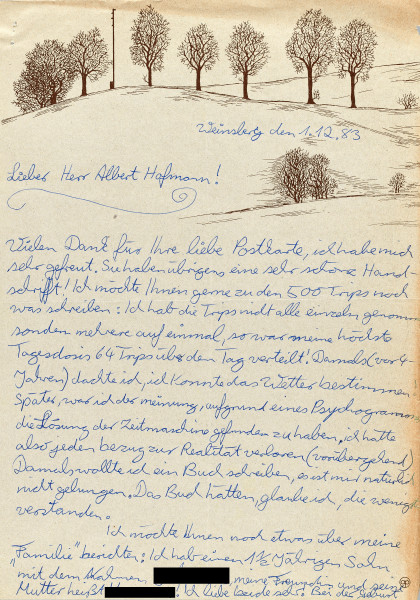 Weinsberg den 1.12.83
Lieber Herr Albert Hofmann!
Vielen Dank für Ihre liebe Postkarte, ich habe mich
sehr gefreut. Sie haben übrigens eine sehr schöne Hand-
schrift! Ich möchte Ihnen gerne zu den 500 Trips noch
was schreiben: Ich hab die Trips nicht alle einzeln genomm
sondern mehrere auf einmal, so war meine höchste
Tagesdosis 64 Trips über den Tag verteilt! Damals (vor 4
Jahren) dachte ich, ich könnte das Wetter bestimmen
Später, war ich der meinung, aufgrund eines Psychogramms
die Lösung der Zeitmaschine gefunden zu haben, ich hatte
also jeden bezug zur Realität verloren (vorübergehend)
Damals wollte ich ein Buch schreiben, es ist mir natürlich
nicht gelungen. Das Buch hätten, glaube ich, die wenigst
verstanden.
Ich möchte Ihnen noch etwas über meine
„Familie" berichten: Ich hab einen 1½ Jährigen Sohn
mit dem Namen meine Freundin und seine
Mutter heißt Ich liebe beide sehr. Bei der Geburt